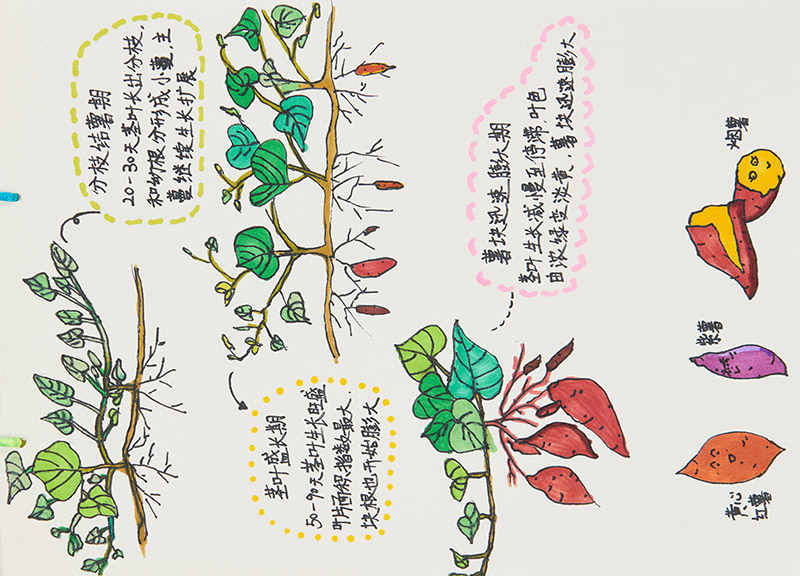 分枝结薯期
20-30天茎叶长出分枝,
和幼根分形成小薯,主
蔓继续生长扩展
茎叶盛长期
50-90天茎叶生长旺盛
叶片面积指数最大,
块根也开始膨大
薯块迅速膨大期
茎叶生长减慢至停滞,叶色
由浓绿变淡黄,薯块迅速膨大
烟薯
紫薯
黄心
红薯